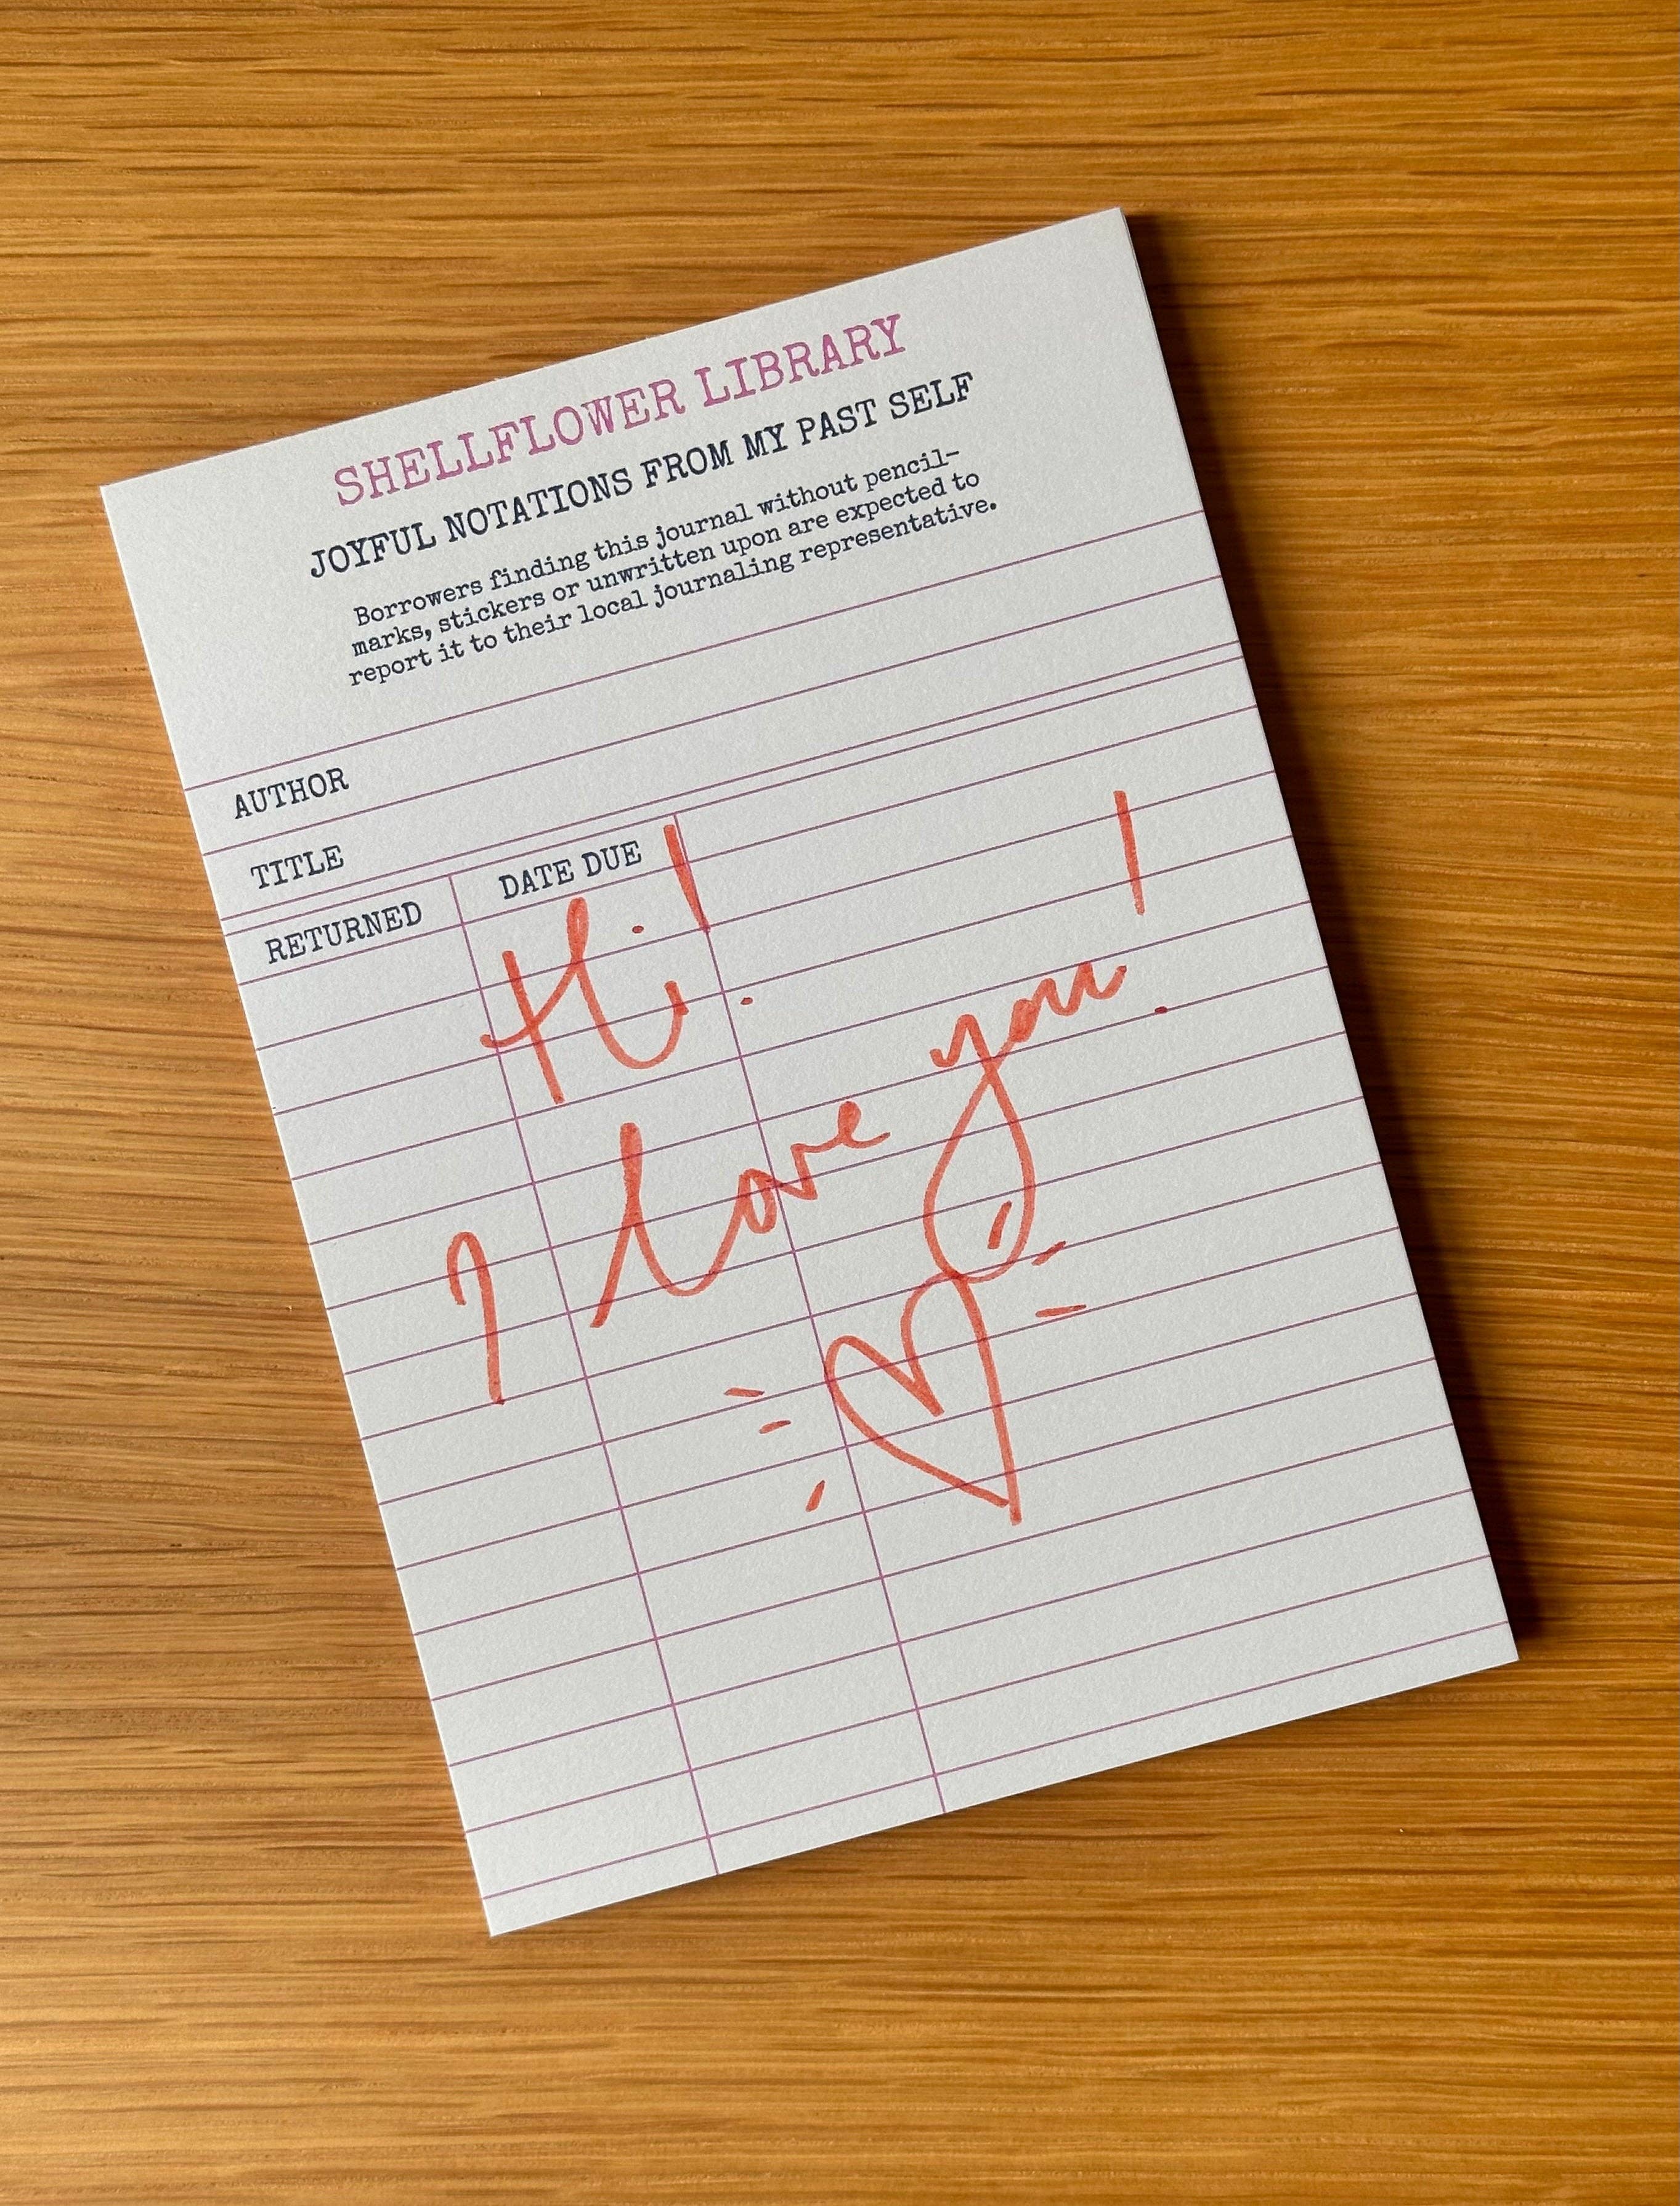 SHELLFLOWER LIBRARY
JOYFUL NOTATIONS FROM MY PAST SELF
Borrowers finding this journal without pencil-
marks, stickers or unwritten upon are expected to
report it to their local journaling representative.
AUTHOR
TITLE
RETURNED DATE DUE
Hi!
I love you!